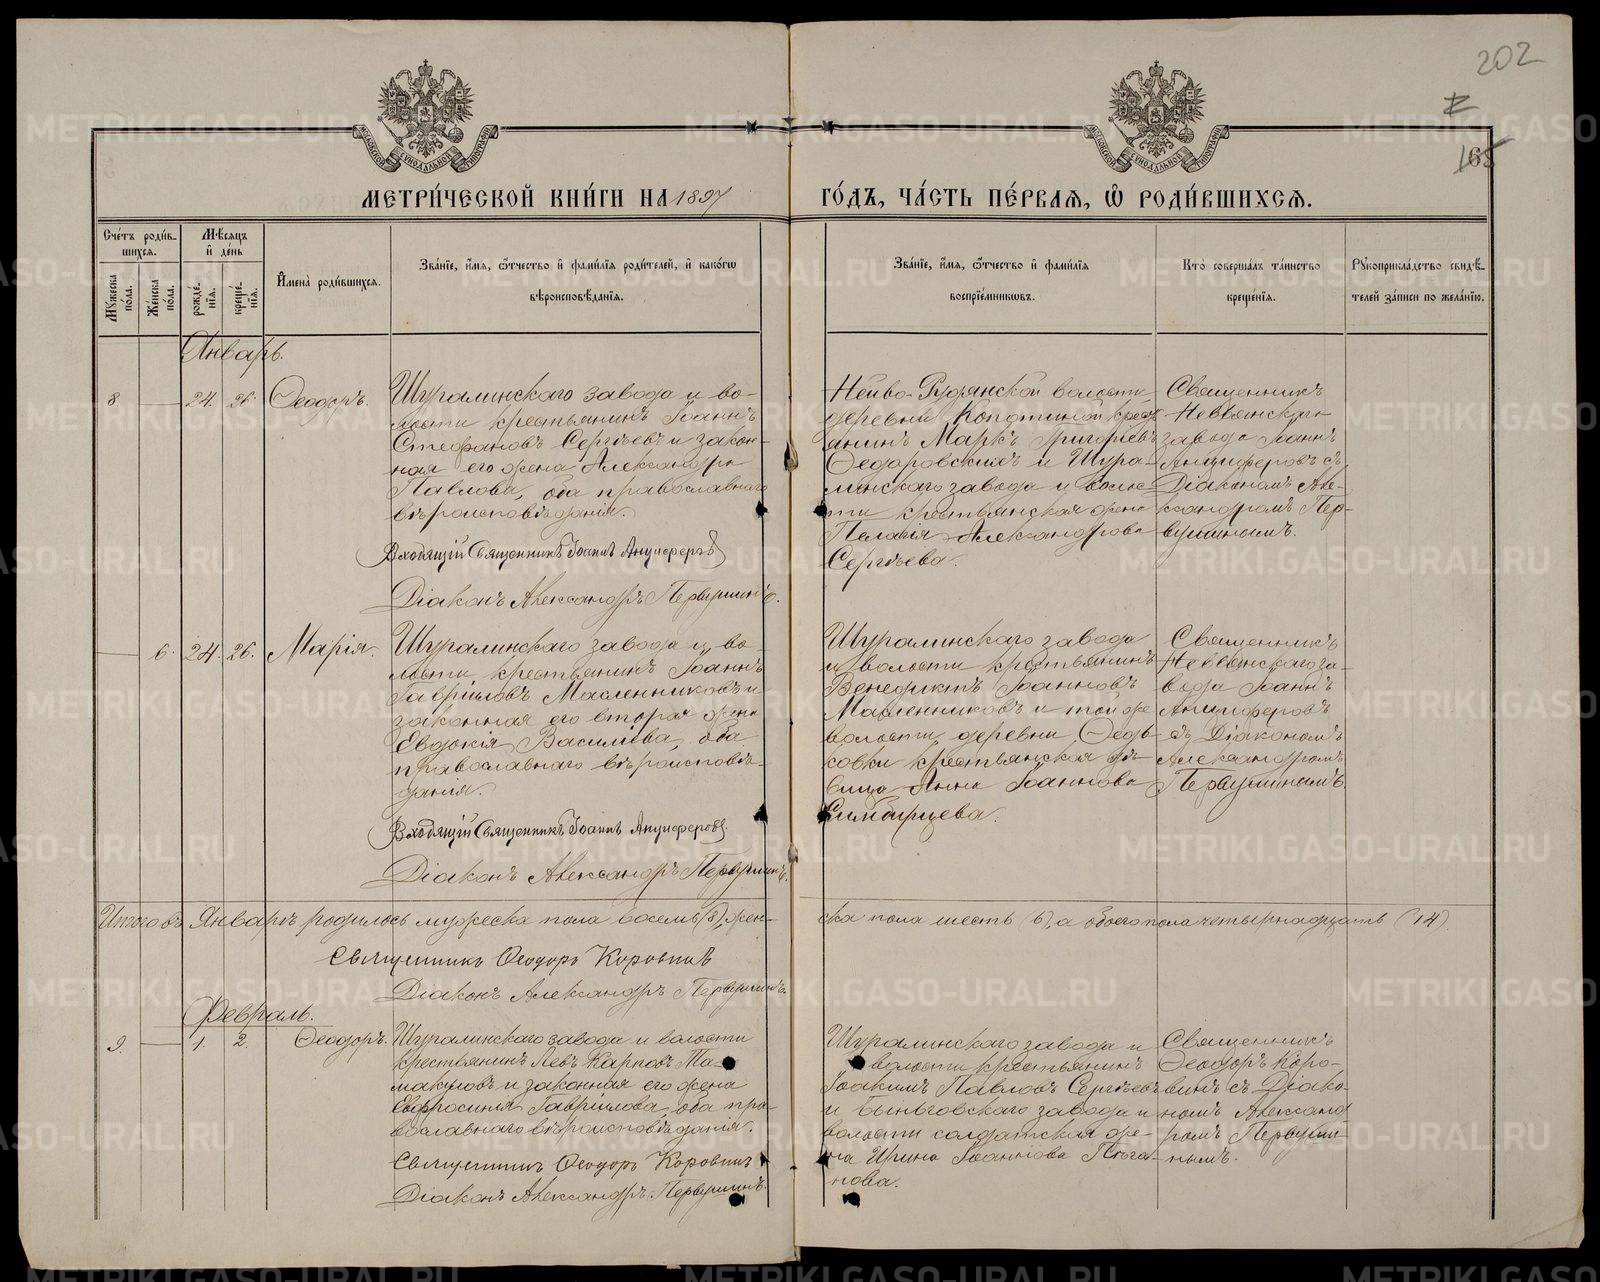 202
165
МОСКОВСКОЙ СѴНОДАЛЬНОЙ ТИПОГРАФІИ
МОСКОВСКОЙ СѴНОДАЛЬНОЙ ТИПОГРАФІИ
МЕТРИ́ЧЕСКОЙ КНИ́ГИ НА 1897 ГО́ДЪ, ЧА́СТЬ ПЕ́РВАѦ, Ѡ҆ РОДИ́ВШИХСѦ.
Сче́тъ роди́в-
шихся.
Му́жеска по́ла.
Же́нска по́ла.
Мѣ́сяцъ и҆ де́нь
рожде́-нія.
креще́-нія.
И҆мена̀ роди́вшихся.
Зва́ніе, и҆́мя, ѻ҆́тчество и҆ фами́лія роди́телей, и҆ како́гѡ
вѣроисповѣ́данія.
Зва́ніе, и҆́мя, ѻ҆́тчество и҆ фами́лія
воспріе́мниковъ.
Кто̀ соверша́лъ та́инство
креще́нія.
Рꙋкоприкла́дство свидѣ́-
телей за́писи по жела́нію.
Январь.
8 — 24. 26. Ѳеодоръ.
Шуралинскаго завода и во-
лости крестьянинъ Іоаннъ
Стефановъ Сергѣевъ и закон-
ная его жена Александра
Павлова, оба православнаго
вѣроисповѣданія.
Входящій Священникъ Іоаннъ Анциферовъ
Діаконъ Александръ Первушинъ.
Нейво-Рудянской волости
деревни Копотиной кресть-
янинъ Маркъ Григоріевъ
Ѳедоровскихъ и Шура-
линскаго завода и волос-
ти крестьянская жена
Пелагія Александрова
Сергѣева.
Священникъ
Невьянскаго
завода Іоаннъ
Анциферовъ съ
Діакономъ Але-
ксандромъ Пер-
вушинымъ.
— 6. 24. 26. Марія.
Шуралинскаго завода и во-
лости крестьянинъ Іоаннъ
Гавріиловъ Масленниковъ и
законная его вторая жена
Евдокія Василіева, оба
православнаго вѣроисповѣ-
данія.
Входящій Священникъ Іоаннъ Анциферовъ.
Діаконъ Александръ Первушинъ.
Шуралинскаго завода
и волости крестьянинъ
Венедиктъ Іоанновъ
Масленниковъ и той же
волости деревни Ѳедь-
ковки крестьянская дѣ-
вица Анна Іоаннова
Симбирцева.
Священникъ
Невьянскаго за-
вода Іоаннъ
Анциферовъ
съ Діакономъ
Александромъ
Первушинымъ.
Итого въ Январѣ родилось мужеска пола восемь (8), жен-
ска пола шесть (6), а обоего пола четырнадцать (14).
Священникъ Ѳеодоръ Коровинъ
Діаконъ Александръ Первушинъ.
Февраль.
9. — 1. 2. Ѳеодоръ.
Шуралинскаго завода и волости
крестьянинъ Левъ Карповъ Та-
макуловъ и законная его жена
Евфросинія Гавріилова, оба пра-
вославнаго вѣроисповѣданія.
Священникъ Ѳеодоръ Коровинъ
Діаконъ Александръ Первушинъ.
Шуралинскаго завода и
волости крестьянинъ
Іоакимъ Павловъ Сергѣевъ
и Быньговскаго завода и
волости солдатская же-
на Ирина Іоаннова
нова.
Священникъ
Ѳеодоръ Коро-
винъ съ Діако-
номъ Александ
ромъ Первуши-
нымъ.